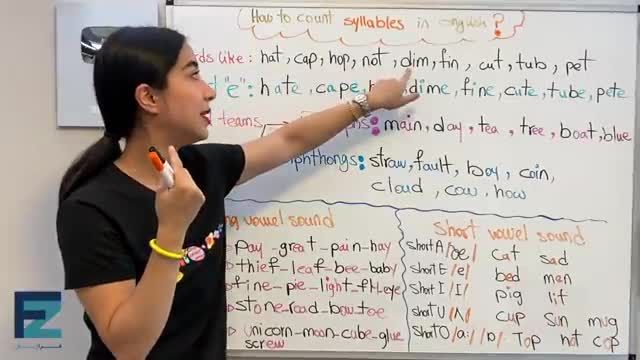 How to count syllables in english?
rds like: hat, cap, hop, not, dim, fin, cut, tub, pet
d "e": hate, cape, dime, fine, cute, tube, pete
d teams
main, day, tea, tree, boat, blue
phthongs: straw, fault, boy, coin,
cloud, cow, how
ng vowel sound
pay-great-pain-hay
thief-leaf-bee-baby
fine-pie-light-fly-eye
stone-road-bow-toe
unicorn-moon-cube-glue
screw
short vowel sound
short A /æ/ cat sad
short E /e/ bed men
short I /I/ pig lit
short U /ʌ/ cup sun mug
short O /a:/ /ɒ/ Top hot cop
FZ